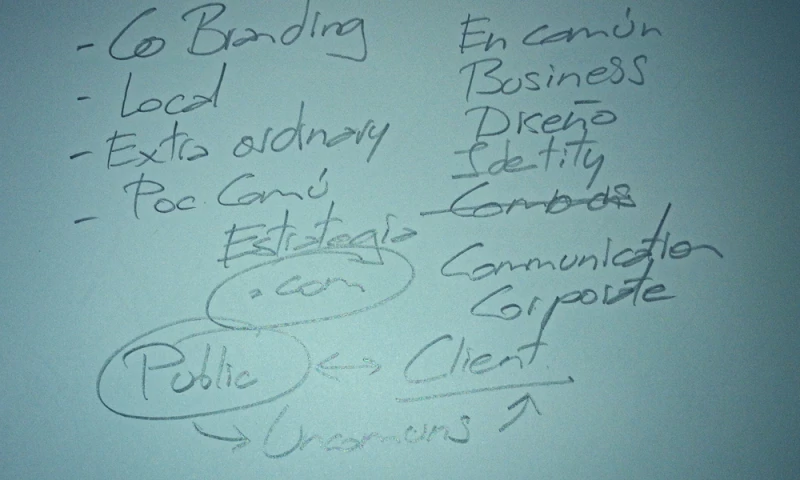 - Co Branding
- Local
- Extra ordinary
- Poc Comú
En común
Business
Diseño
Identity
Estrategia
.com
Communication
Corporate
Public ↔ Client
→ Uncommuns ↗